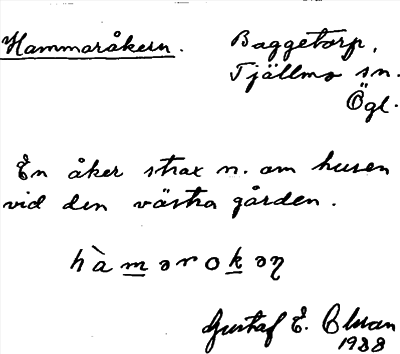 Hammaråkern. Baggetorp,
Tjällmo sn.
Ögl.
En åker strax n. om husen
vid den västra gården.
hàmərokəƞ
Gustaf E. Olsson
1938